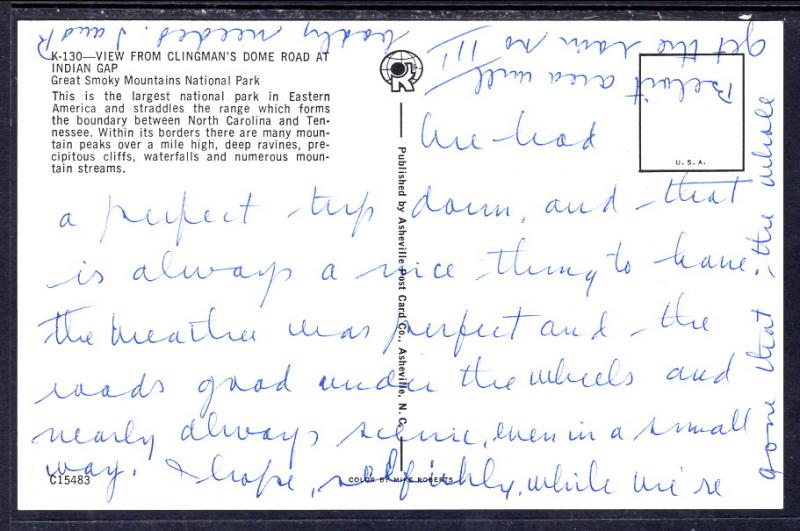 K-130—VIEW FROM CLINGMAN'S DOME ROAD AT
INDIAN GAP
Great Smoky Mountains National Park
This is the largest national park in Eastern
America and straddles the range which forms
the boundary between North Carolina and Ten-
nessee. Within its borders there are many moun-
tain peaks over a mile high, deep ravines, pre-
cipitous cliffs, waterfalls and numerous moun-
tain streams.
U.S.A.
Published by Asheville Post Card Co., Asheville, N. C.
C15483
COLOR BY MIKE ROBERTS
We had
a perfect trip down, and that
is always a nice thing to have.
the weather was perfect and the
roads good under the wheels and
nearly always scenic, even in a small
way. I hope, selfishly, while we're
gone that the whole
Beloit area will
get the rain so Ill
badly needed. J and R